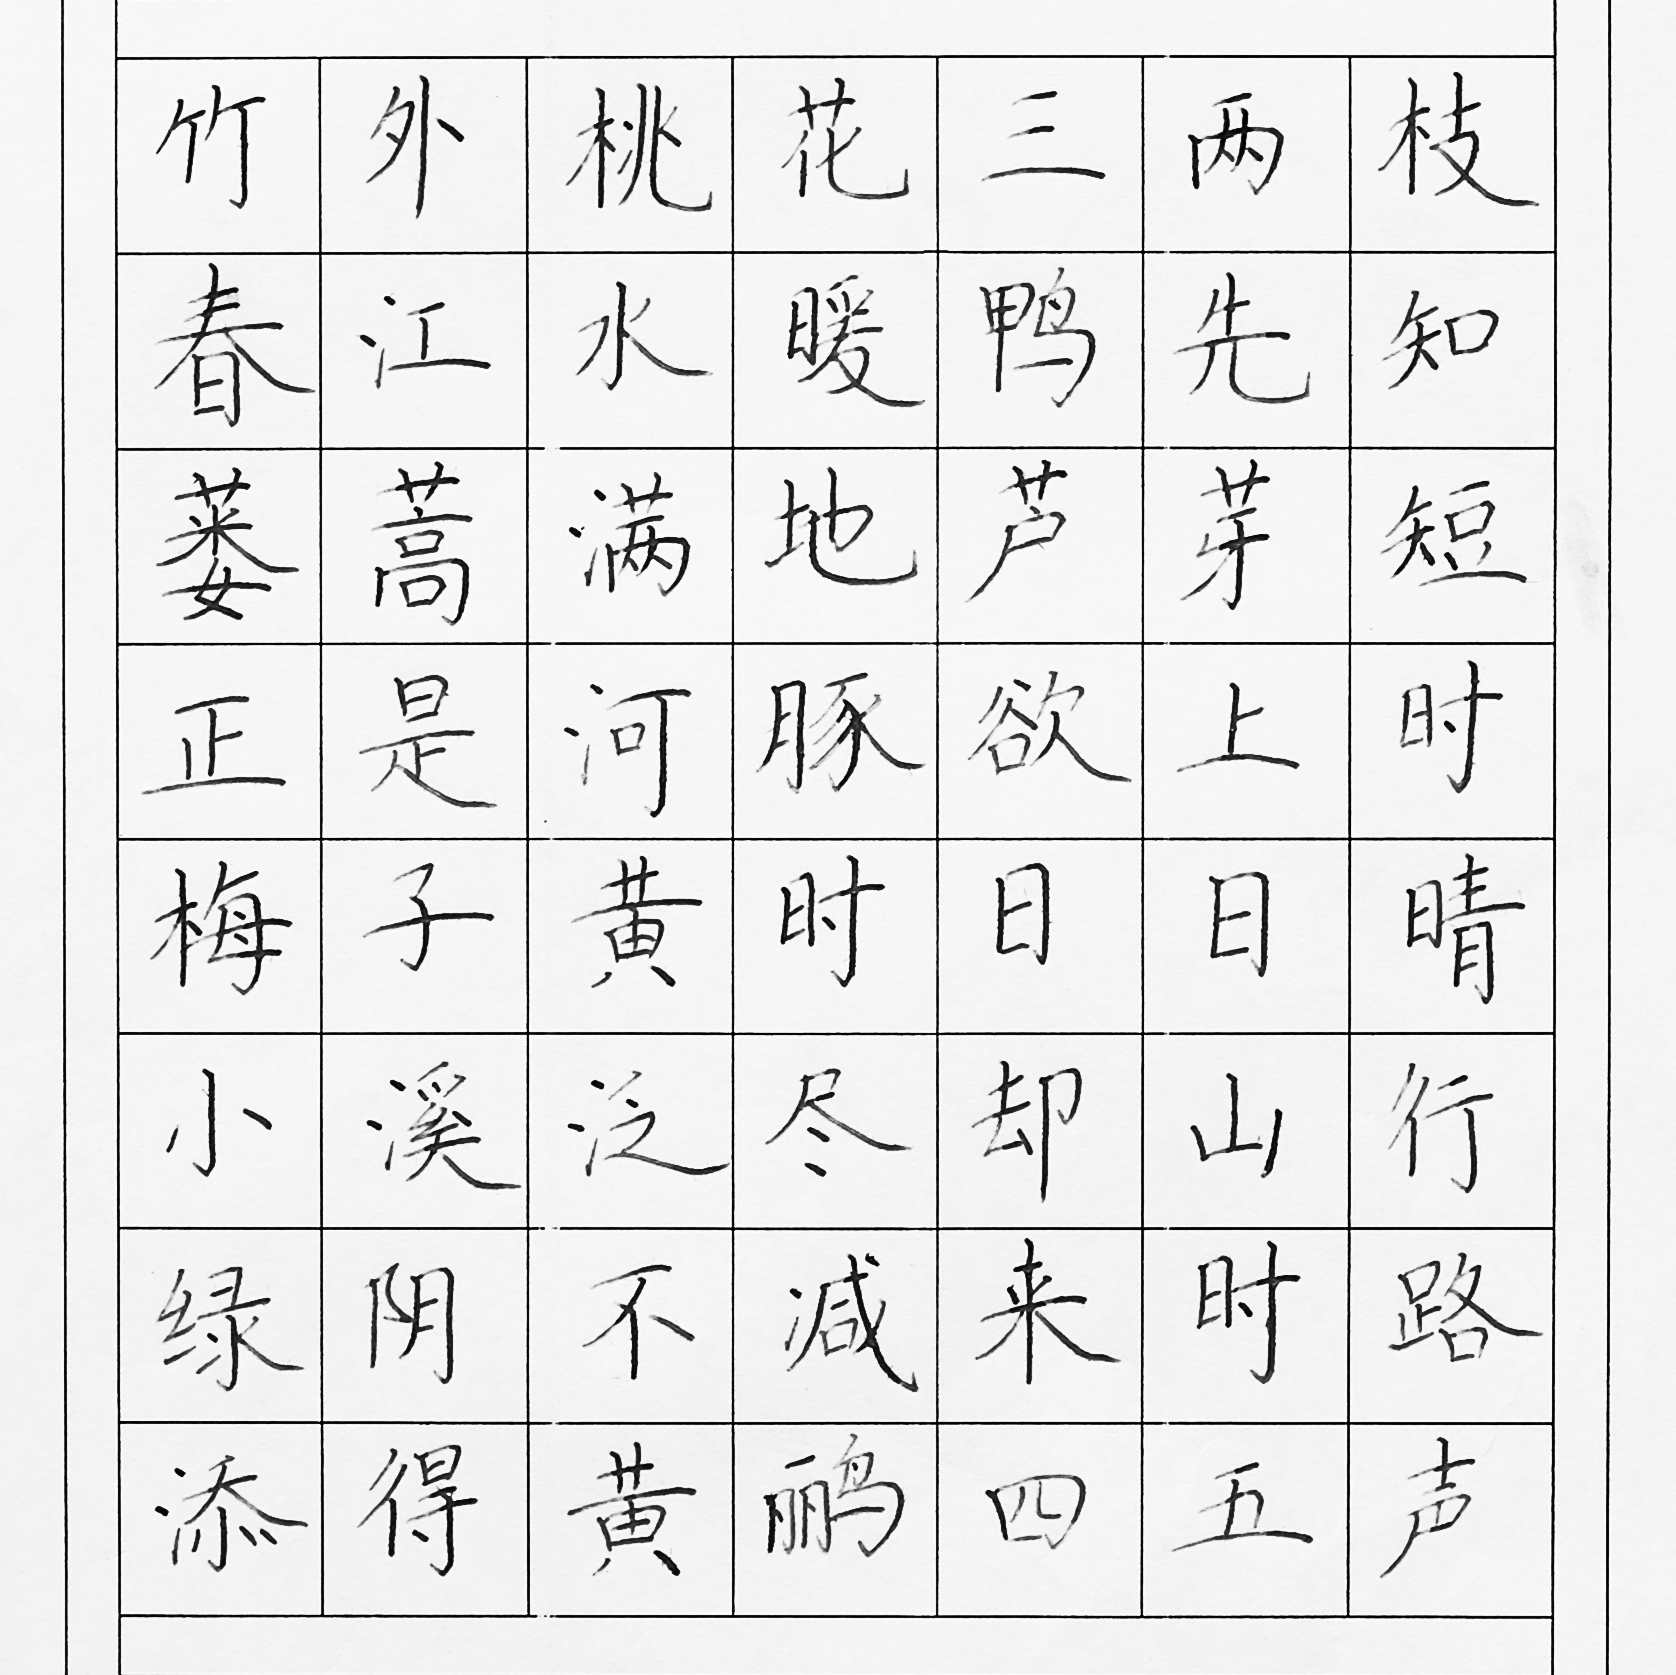 竹外桃花三两枝
春江水暖鸭先知
蒌蒿满地芦芽短
正是河豚欲上时
梅子黄时日日晴
小溪泛尽却山行
绿阴不减来时路
添得黄鹂四五声